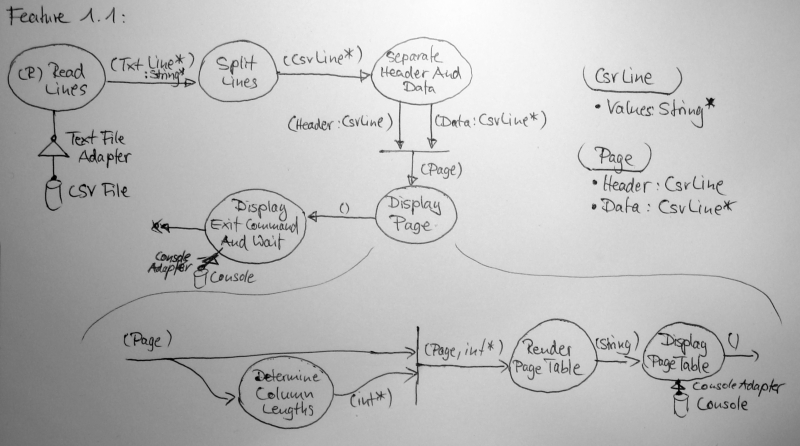 Feature 1.1:
(R) Read
Lines
(Txt Line*)
:String*
Split
Lines
(CsvLine*)
Separate
Header And
Data
(Header:CsvLine)
(Data:CsvLine*)
(Page)
Text File
Adapter
CSV File
Display
Page
()
Display
Exit Command
And Wait
Console
Adapter
Console
(CsvLine)
• Values:String*
(Page)
• Header:CsvLine
• Data:CsvLine*
(Page)
Determine
Column
Lengths
(int*)
(Page, int*)
Render
Page Table
(String)
Display
Page Table
()
Console Adapter
Console